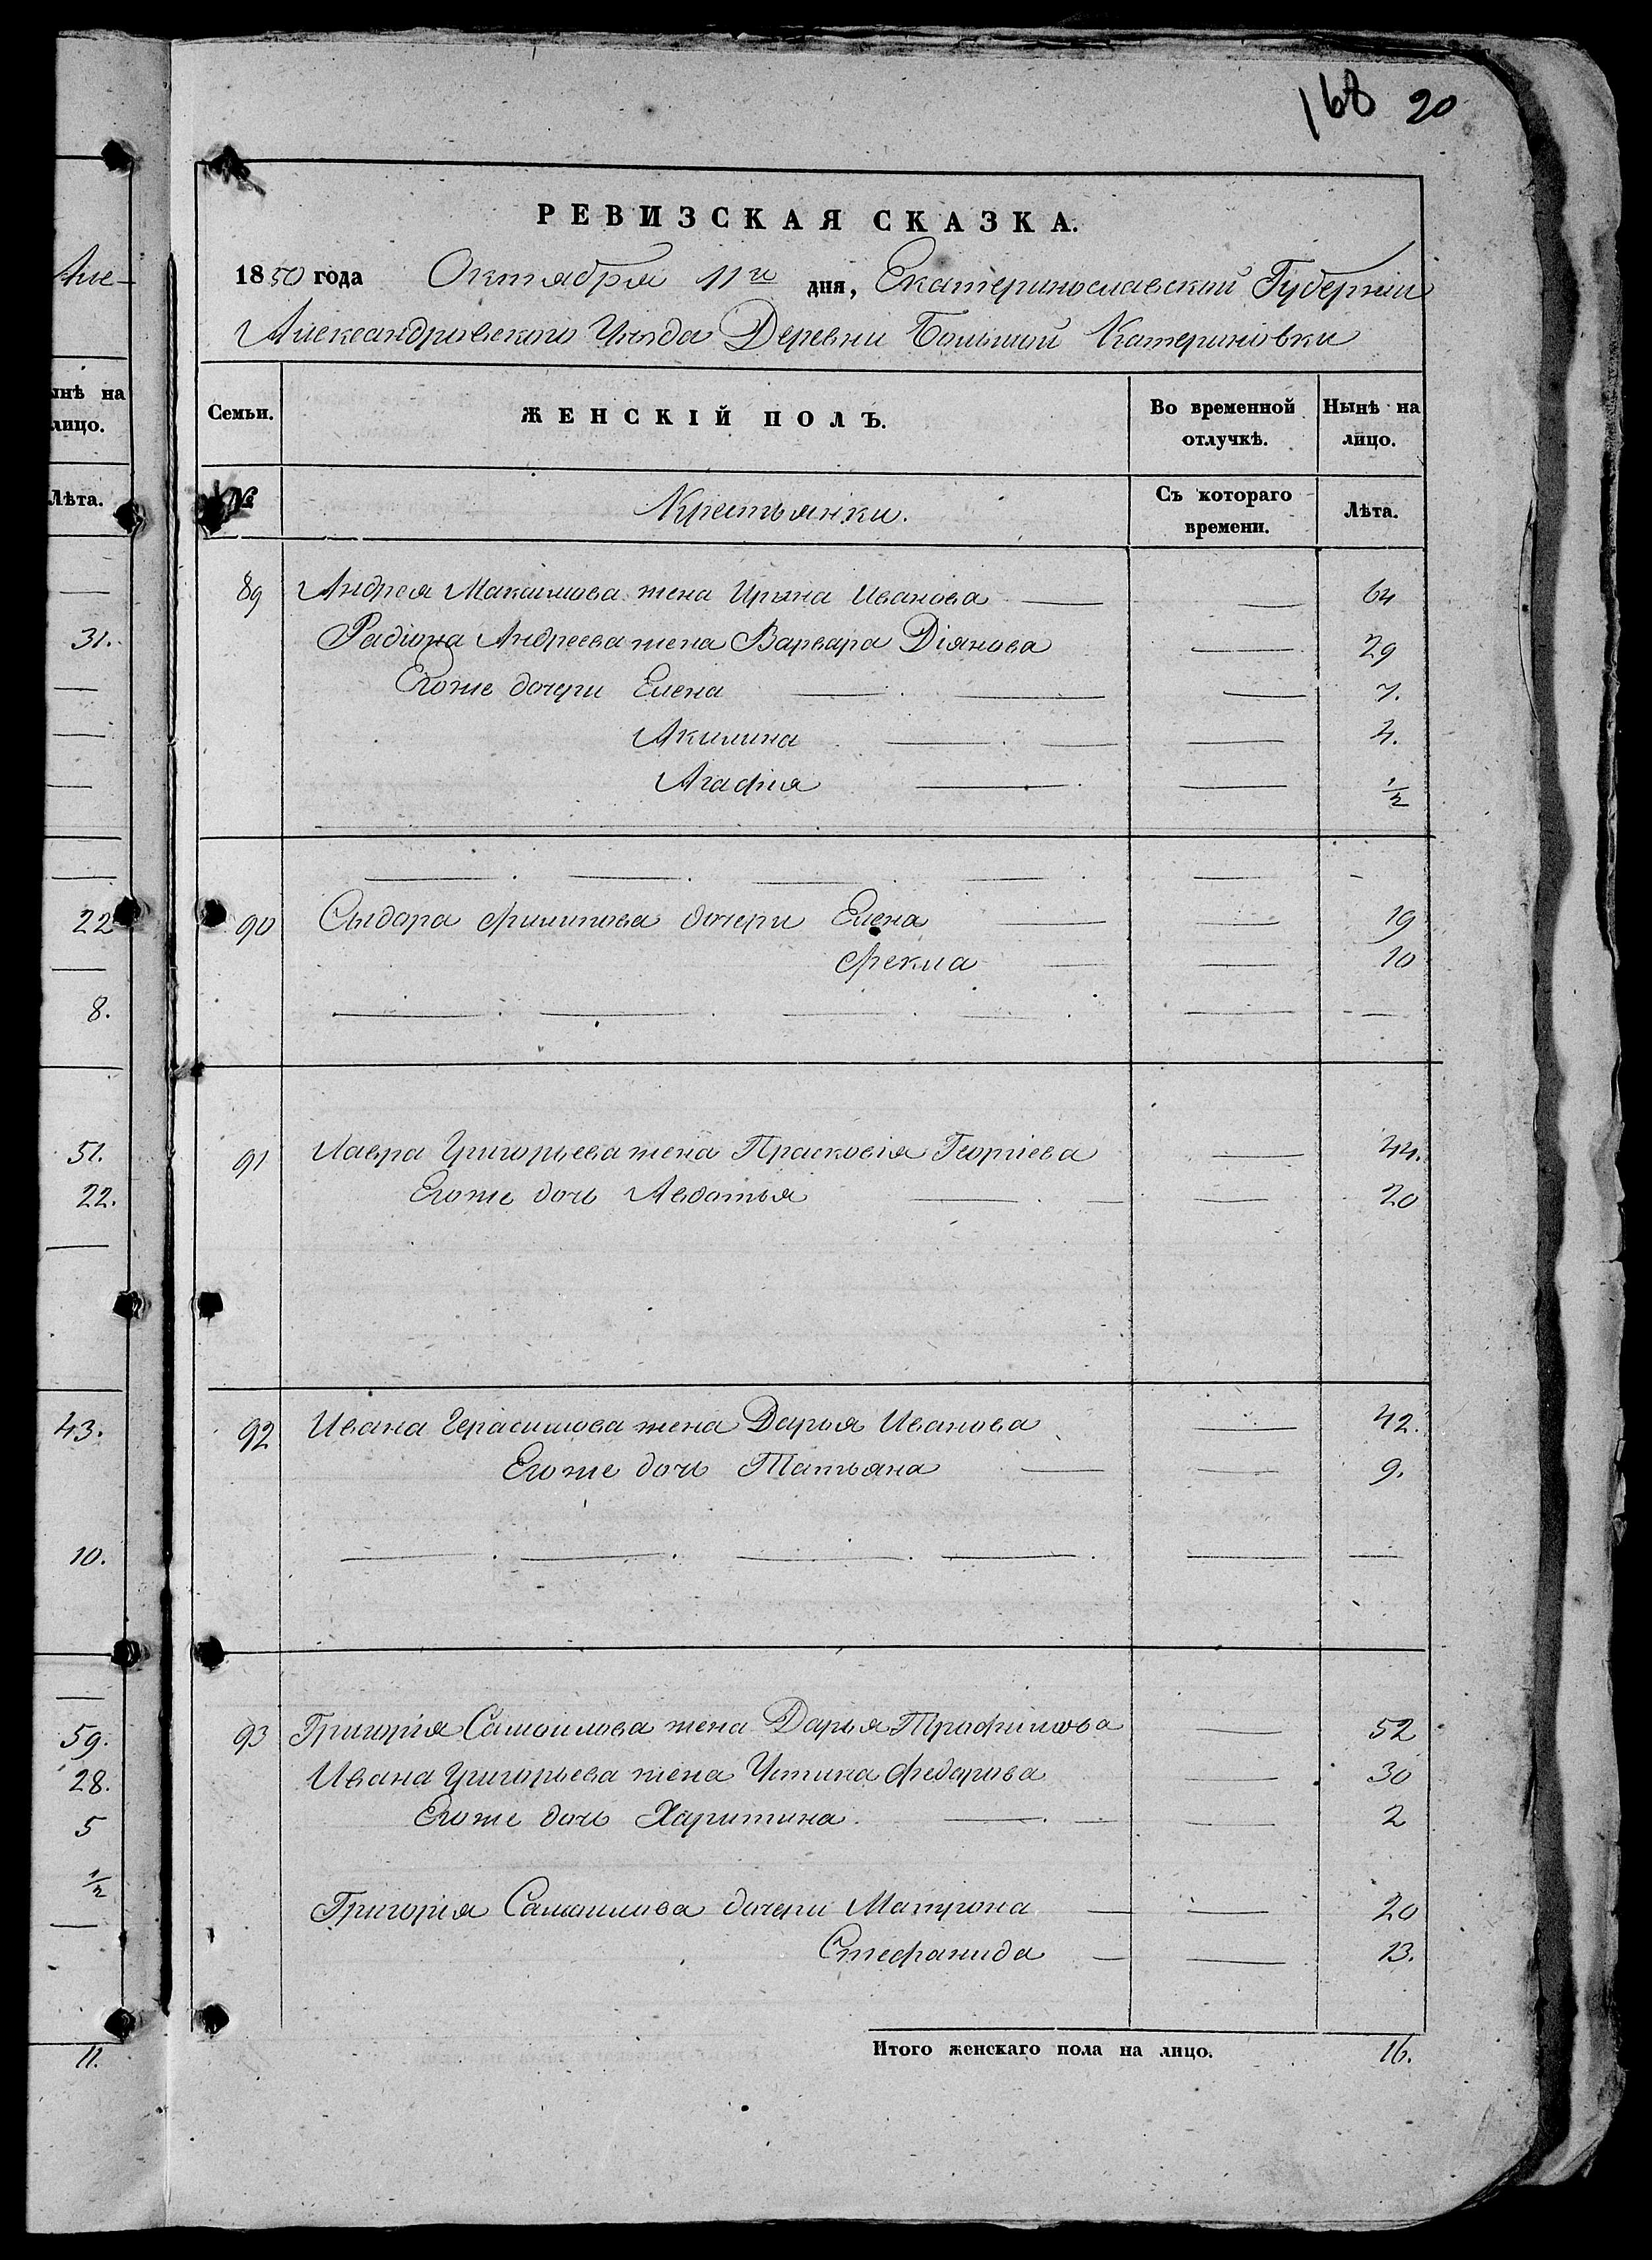 168 20
Али-
РЕВИЗСКАЯ СКАЗКА.
1850 года Октября 11го дня, Екатеринославской Губерніи
Александровского Уѣзда Деревни Большой Катериновки
ынѣ на
лицо.
Лѣта.
Семьи.
ЖЕНСКІЙ ПОЛЪ.
Во временной
отлучкѣ.
Нынѣ на
лицо.
№
Крестьянки.
Съ котораго
времени.
Лѣта.
89 Андрея Максимова жена Ирина Иванова — — 64
31. Радіона Андреева жена Варвара Діянова — 29
Егоже дочери Елена — — — 7.
Акилина — — — 4.
Агафия — — ½
22 90 Сыдора Филипова дочери Елена — — 19
Фекла — — 10
8.
51. 91 Лавра Григорьева жена Прасковія Георгіева — 44.
22. Егоже дочь Авдотья — — — 20
43. 92 Ивана Герасимова жена Дарья Иванова — 42.
Егоже дочь Татьяна — — 9.
10.
59. 93 Григорія Самоилова жена Дарья Трофимова — 52
28. Ивана Григорьева жена Устина Федорова — 30
5 Егоже дочь Харитина. — — — 2
½
Григорія Самоилова дочери Матрона — — 20
Стефанида — — 13.
11. Итого женскаго пола на лицо. 16.